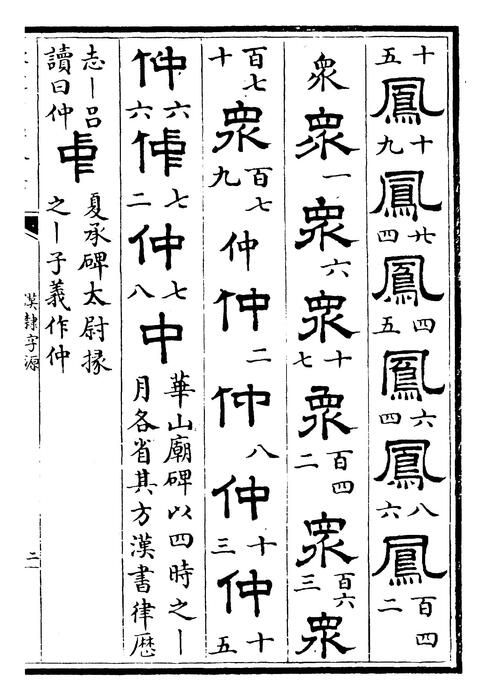 十五鳳十九鳳廿四鳳四五鳳六四鳳八六鳳百四二
衆衆一衆六衆十七衆百四二衆百六三衆
百七十衆百七九仲仲二仲八仲十三仲十五
仲六六仲七二仲七八中華山廟碑以四時之丨月各省其方漢書律歴
志丨吕讀曰仲夏承碑太尉掾之丨子義作仲
漢隸字源 二